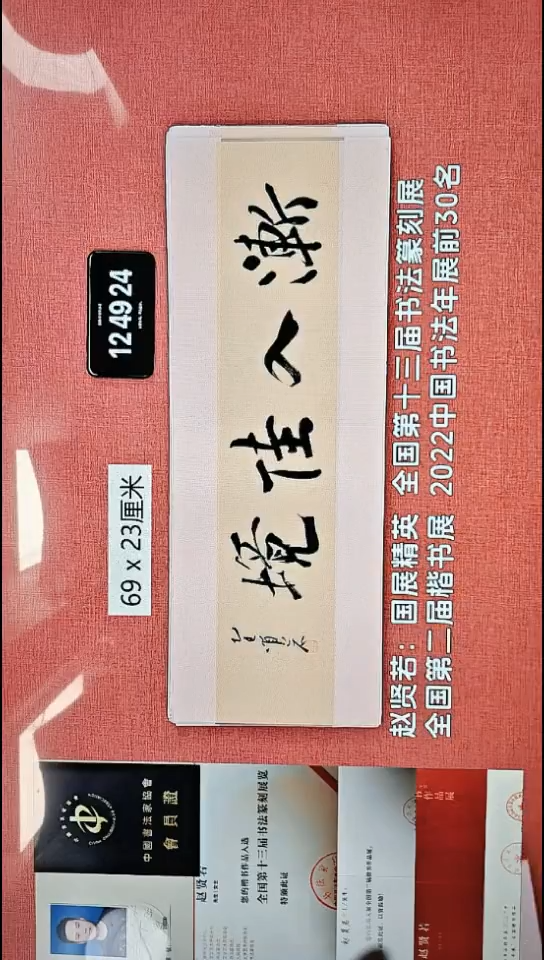 12 49 24
69 x 23厘米
漸入佳境
赵贤若：国展精英 全国第十三届书法篆刻展
全国第二届楷书展 2022中国书法年展前30名
中國書法家協會
會員證
赵贤若
您的楷书作品入选
全国第十三届书法篆刻展览
特颁此证
赵贤若
作品展